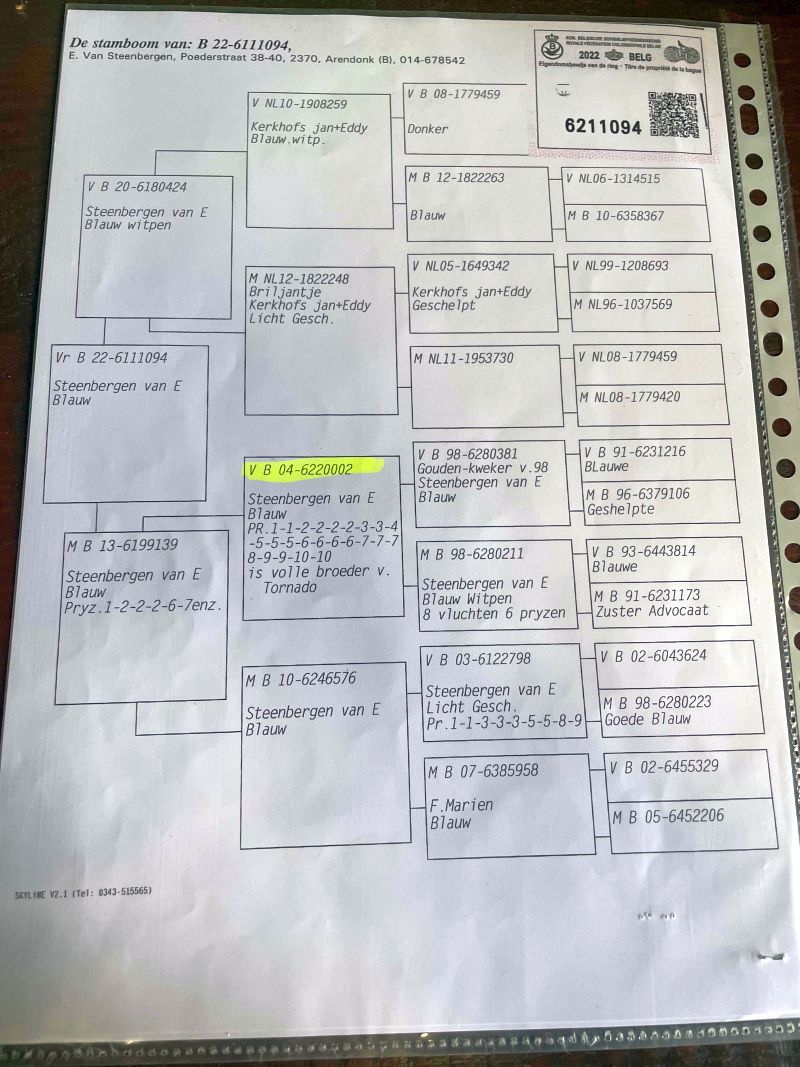 De stamboom van: B 22-6111094,
E. Van Steenbergen, Poederstraat 38-40, 2370, Arendonk (B), 014-678542
KON. BELGISCHE DUIVENLIEFHEBBERSBOND
ROYALE FÉDÉRATION COLOMBOPHILE BELGE
2022 BELG
Eigendomsbewijs van de ring - Titre de propriété de la bague
6211094
V NL10-1908259
Kerkhofs jan+Eddy
Blauw.witp.
V B 08-1779459
Donker
V B 20-6180424
Steenbergen van E
Blauw witpen
M B 12-1822263
Blauw
V NL06-1314515
M B 10-6358367
M NL12-1822248
Briljantje
Kerkhofs jan+Eddy
Licht Gesch.
V NL05-1649342
Kerkhofs jan+Eddy
Geschelpt
V NL99-1208693
M NL96-1037569
Vr B 22-6111094
Steenbergen van E
Blauw
M NL11-1953730
V NL08-1779459
M NL08-1779420
V B 04-6220002
Steenbergen van E
Blauw
PR.1-1-2-2-2-2-3-3-4
-5-5-5-6-6-6-6-7-7-7
8-9-9-10-10
is volle broeder v.
Tornado
V B 98-6280381
Gouden-kweker v.98
Steenbergen van E
Blauw
V B 91-6231216
BLauwe
M B 96-6379106
Geshelpte
M B 13-6199139
Steenbergen van E
Blauw
Pryz.1-2-2-2-6-7enz.
M B 98-6280211
Steenbergen van E
Blauw Witpen
8 vluchten 6 pryzen
V B 93-6443814
Blauwe
M B 91-6231173
Zuster Advocaat
M B 10-6246576
Steenbergen van E
Blauw
V B 03-6122798
Steenbergen van E
Licht Gesch.
Pr.1-1-3-3-3-5-5-8-9
V B 02-6043624
M B 98-6280223
Goede Blauw
M B 07-6385958
F.Marien
Blauw
V B 02-6455329
M B 05-6452206
SKYLINE V2.1 (Tel: 0343-515565)